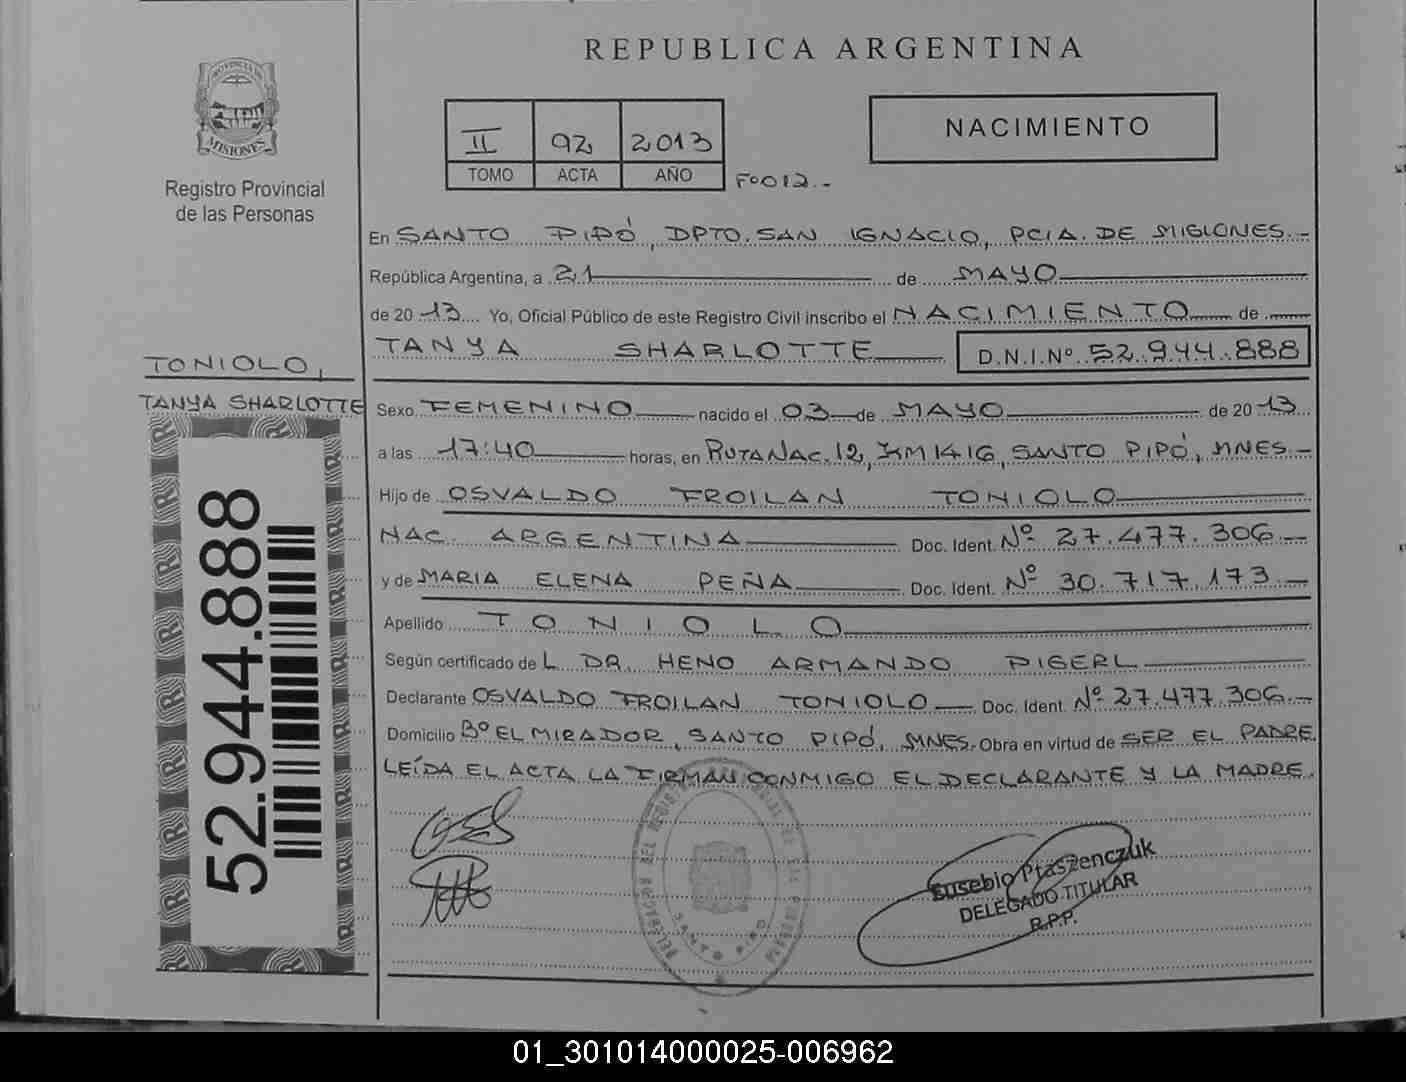 REPUBLICA ARGENTINA
PROVINCIA DE
MISIONES
Registro Provincial
de las Personas
II 92 2013
TOMO ACTA AÑO
Fº012.-
NACIMIENTO
En SANTO PIPÓ, DPTO. SAN IGNACIO, PCIA. DE MISIONES.-
República Argentina, a 21 de MAYO
de 2013 Yo, Oficial Público de este Registro Civil inscribo el NACIMIENTO de
TANYA SHARLOTTE D.N.I.Nº 52.944.888
TONIOLO,
TANYA SHARLOTTE
52.944.888
Sexo FEMENINO nacido el 03 de MAYO de 2013
a las 17:40 horas, en RUTA NAC. 12, KM 1416, SANTO PIPÓ, MNES.-
Hijo de OSVALDO FROILAN TONIOLO
NAC. ARGENTINA Doc. Ident. Nº 27.477.306
y de MARIA ELENA PEÑA Doc. Ident. Nº 30.717.173.-
Apellido TONIOLO
Según certificado de L DR. HENO ARMANDO PIGERL
Declarante OSVALDO FROILAN TONIOLO Doc. Ident. Nº 27.477.306.-
Domicilio Bº EL MIRADOR, SANTO PIPÓ, MNES. Obra en virtud de SER EL PADRE.
LEÍDA EL ACTA LA FIRMAN CONMIGO EL DECLARANTE Y LA MADRE.
SANTO PIPO
Eusebio Ptaszenczuk
DELEGADO TITULAR
R.P.P.
01_301014000025-006962